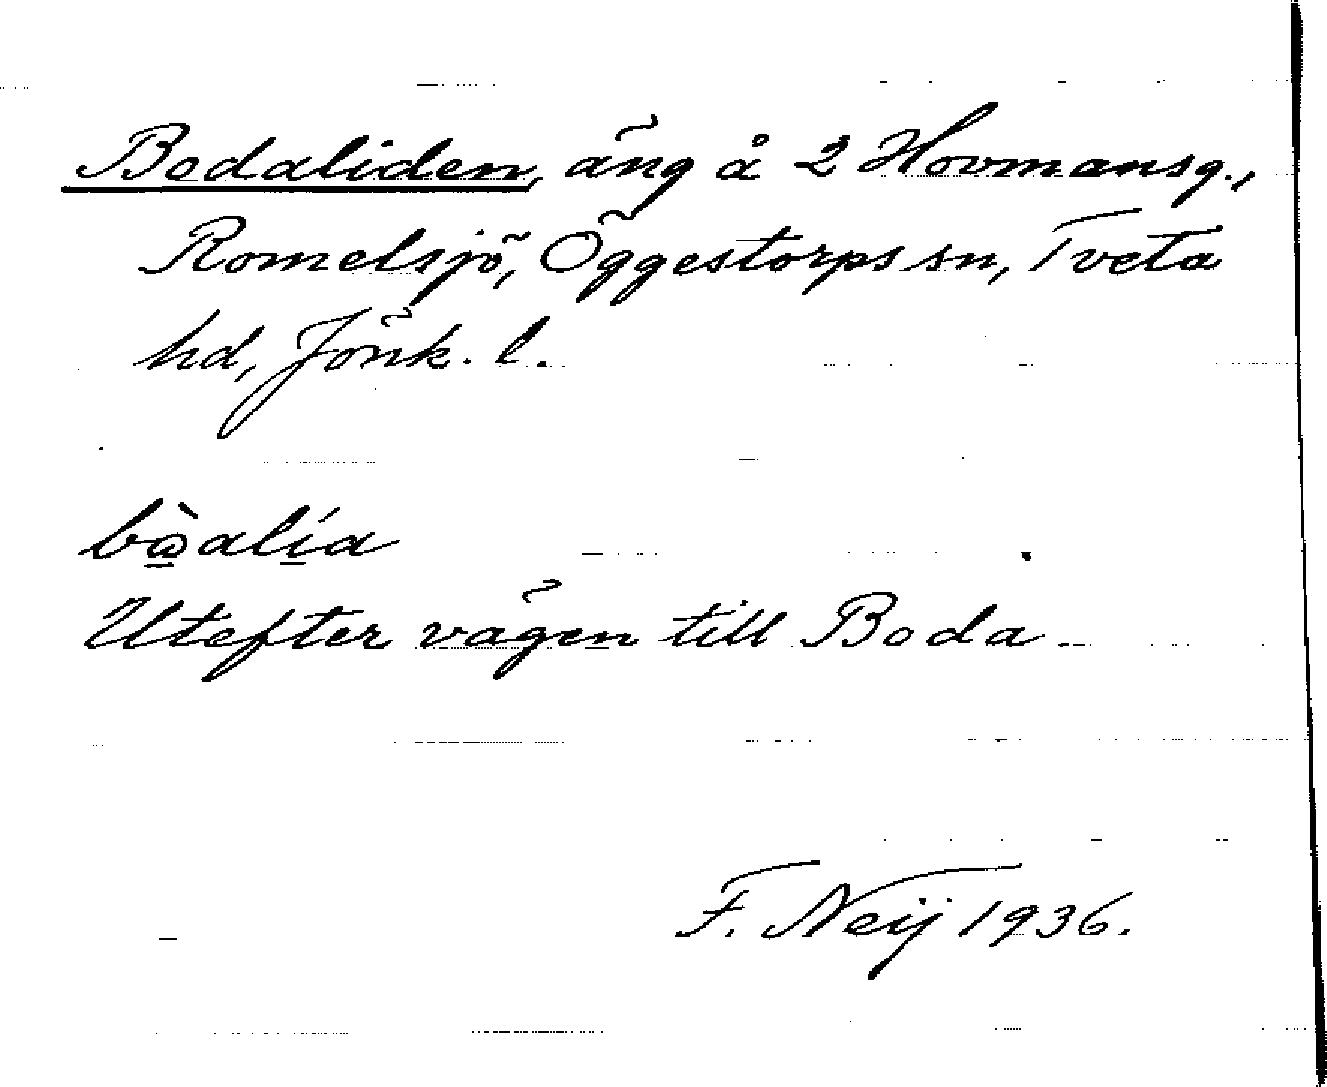 Bodaliden, äng å 2 Hovmansg.,
Romelsjö, Öggestorps sn, Tveta
hd, Jönk. l.
bàalía
Utefter vägen till Boda.
F. Neij 1936.